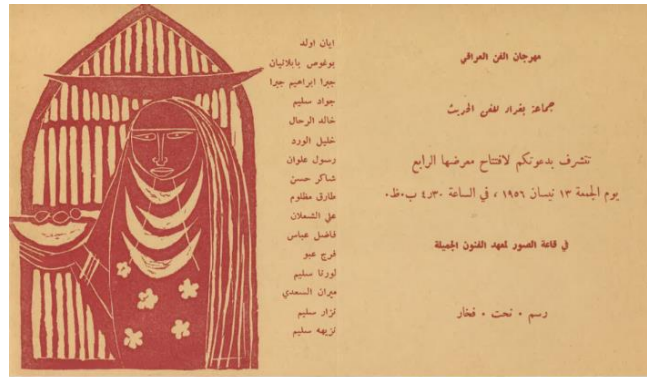 مهرجان الفن العراقي
جماعة بغداد للفن الحديث
تتشرف بدعوتكم لافتتاح معرضها الرابع
يوم الجمعة ١٣ نيسان ١٩٥٦ ، في الساعة ٤٫٣٠ ب.ظ.
في قاعة الصور لمعهد الفنون الجميلة
رسم • نحت • فخار
ايان اولد
بوغوص بابلانيان
جبرا ابراهيم جبرا
جواد سليم
خالد الرحال
خليل الورد
رسول علوان
شاكر حسن
طارق مظلوم
علي الشعلان
فاضل عباس
فرج عبو
لورنا سليم
ميران السعدي
نزار سليم
نزيهه سليم